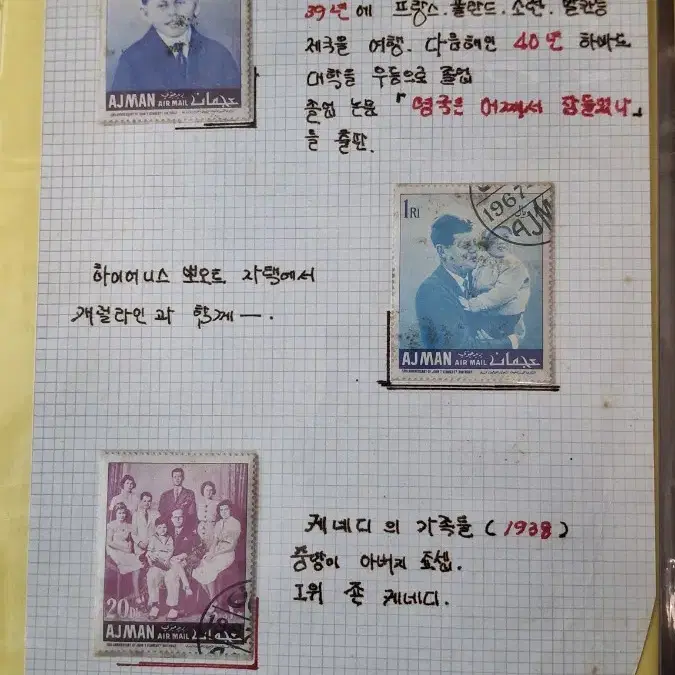 39년에 프랑스. 폴란드. 소련. 발칸등
제국을 여행. 다음해인 40년 하바드
대학을 우등으로 졸업
졸업 논문 「영국은 어째서 잠들었나」
를 출판.
AJMAN AIR MAIL عجمان
1 RI
1967
AJM
하이어니스 뽀오트 자택에서
캐럴라인과 함께 —.
AJMAN AIR MAIL عجمان
20
AJMAN AIR MAIL عجمان
케네디의 가족들 (1938)
중앙이 아버지 죠셉.
그위 죤 케네디.